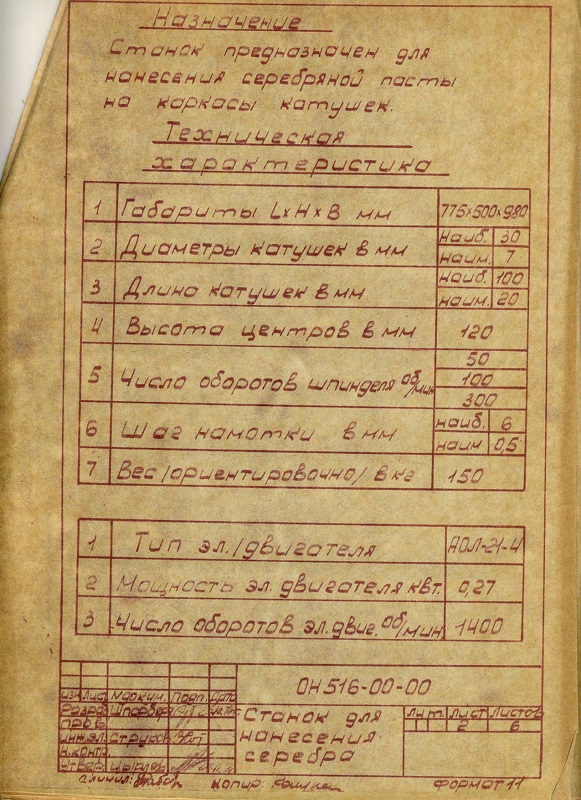 Назначение
Станок предназначен для
нанесения серебряной пасты
на каркасы катушек.
Техническая
характеристика
1 Габариты L×H×B мм 775×500×980
2 Диаметры катушек в мм наиб. 30
наим. 7
3 Длина катушек в мм наиб. 100
наим. 20
4 Высота центров в мм 120
5 Число оборотов шпинделя об/мин 50
100
300
6 Шаг намотки в мм наиб. 6
наим 0,5
7 Вес /ориентировочно/ в кг 150
1 Тип эл./двигателя АОЛ-21-4
2 Мощность эл. двигателя квт. 0,27
3 Число оборотов эл.двиг. об/мин 1400
ОН516-00-00
изм Лист № докум. Подп. Дата
Разраб
пров
инж.эл. Струков
н.контр.
утвер.
Станок для
нанесения
серебра
лит. лист листов
2 6
сличил:
копир:
Формат 11